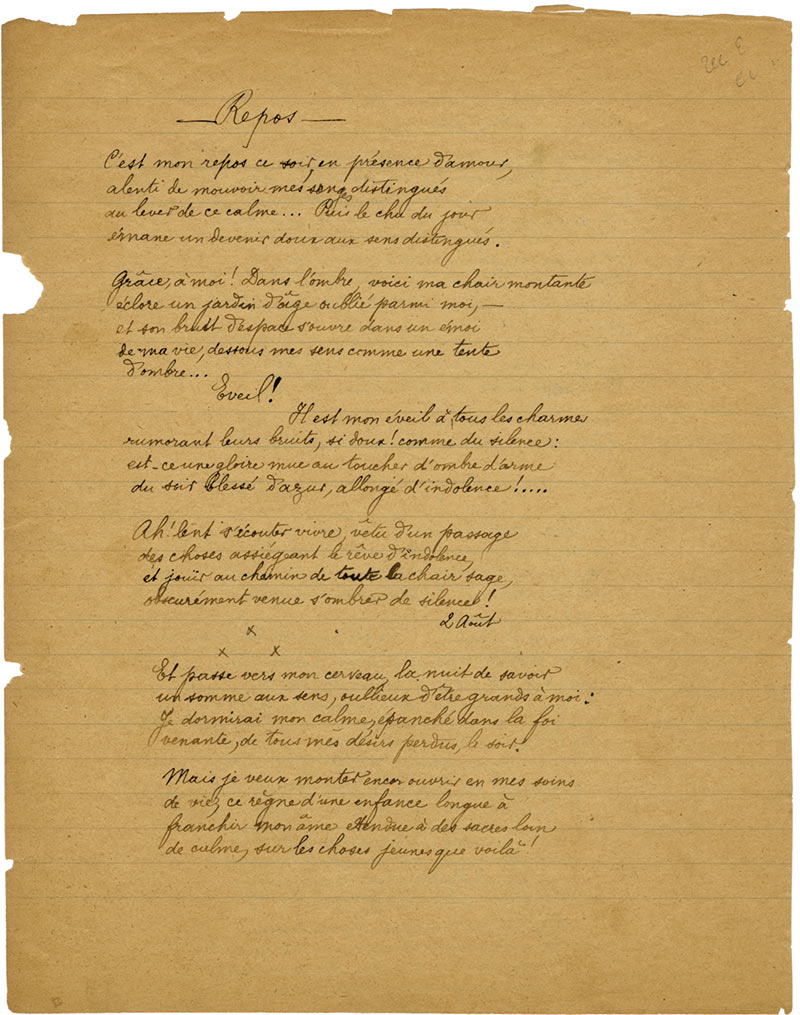 Repos
C'est mon repos ce soir, en présence d'amour,
alenti de mouvoir mes songes distingués
au lever de ce calme... Puis le chu du jour
émane un devenir doux aux sens distingués.
Grâce, à moi! Dans l'ombre, voici ma chair montante
éclore un jardin d'âge oublié parmi moi, —
et son bruit d'espace s'ouvre dans un émoi
de ma vie, dessous mes sens comme une tente
d'ombre...
Eveil!
Il est mon éveil à tous les charme
rumorant leurs bruits, si doux! comme du silence:
est-ce une gloire mue au toucher d'ombre d'arme
du soir blessé d'azur, allongé d'indolence!....
Ah! lent s'écouter vivre, vêtu d'un passage
des choses assiégeant le rêve d'indolence,
et jouir au chemin de toute la chair sage,
obscurément venue s'ombrer de silence!
2 Août
x
x x
Et passe vers mon cerveau, la nuit de savoir
un somme aux sens, oublieux d'être grands à moi:
Je dormirai mon calme, épanché dans la foi
venante, de tous mes désirs perdus, le soir.
Mais je veux monter encor ouvrir en mes soins
de vie, ce règne d'une enfance longue à
franchir mon âme étendue à des sacres loin
de calme, sur les choses jeunes que voilà!